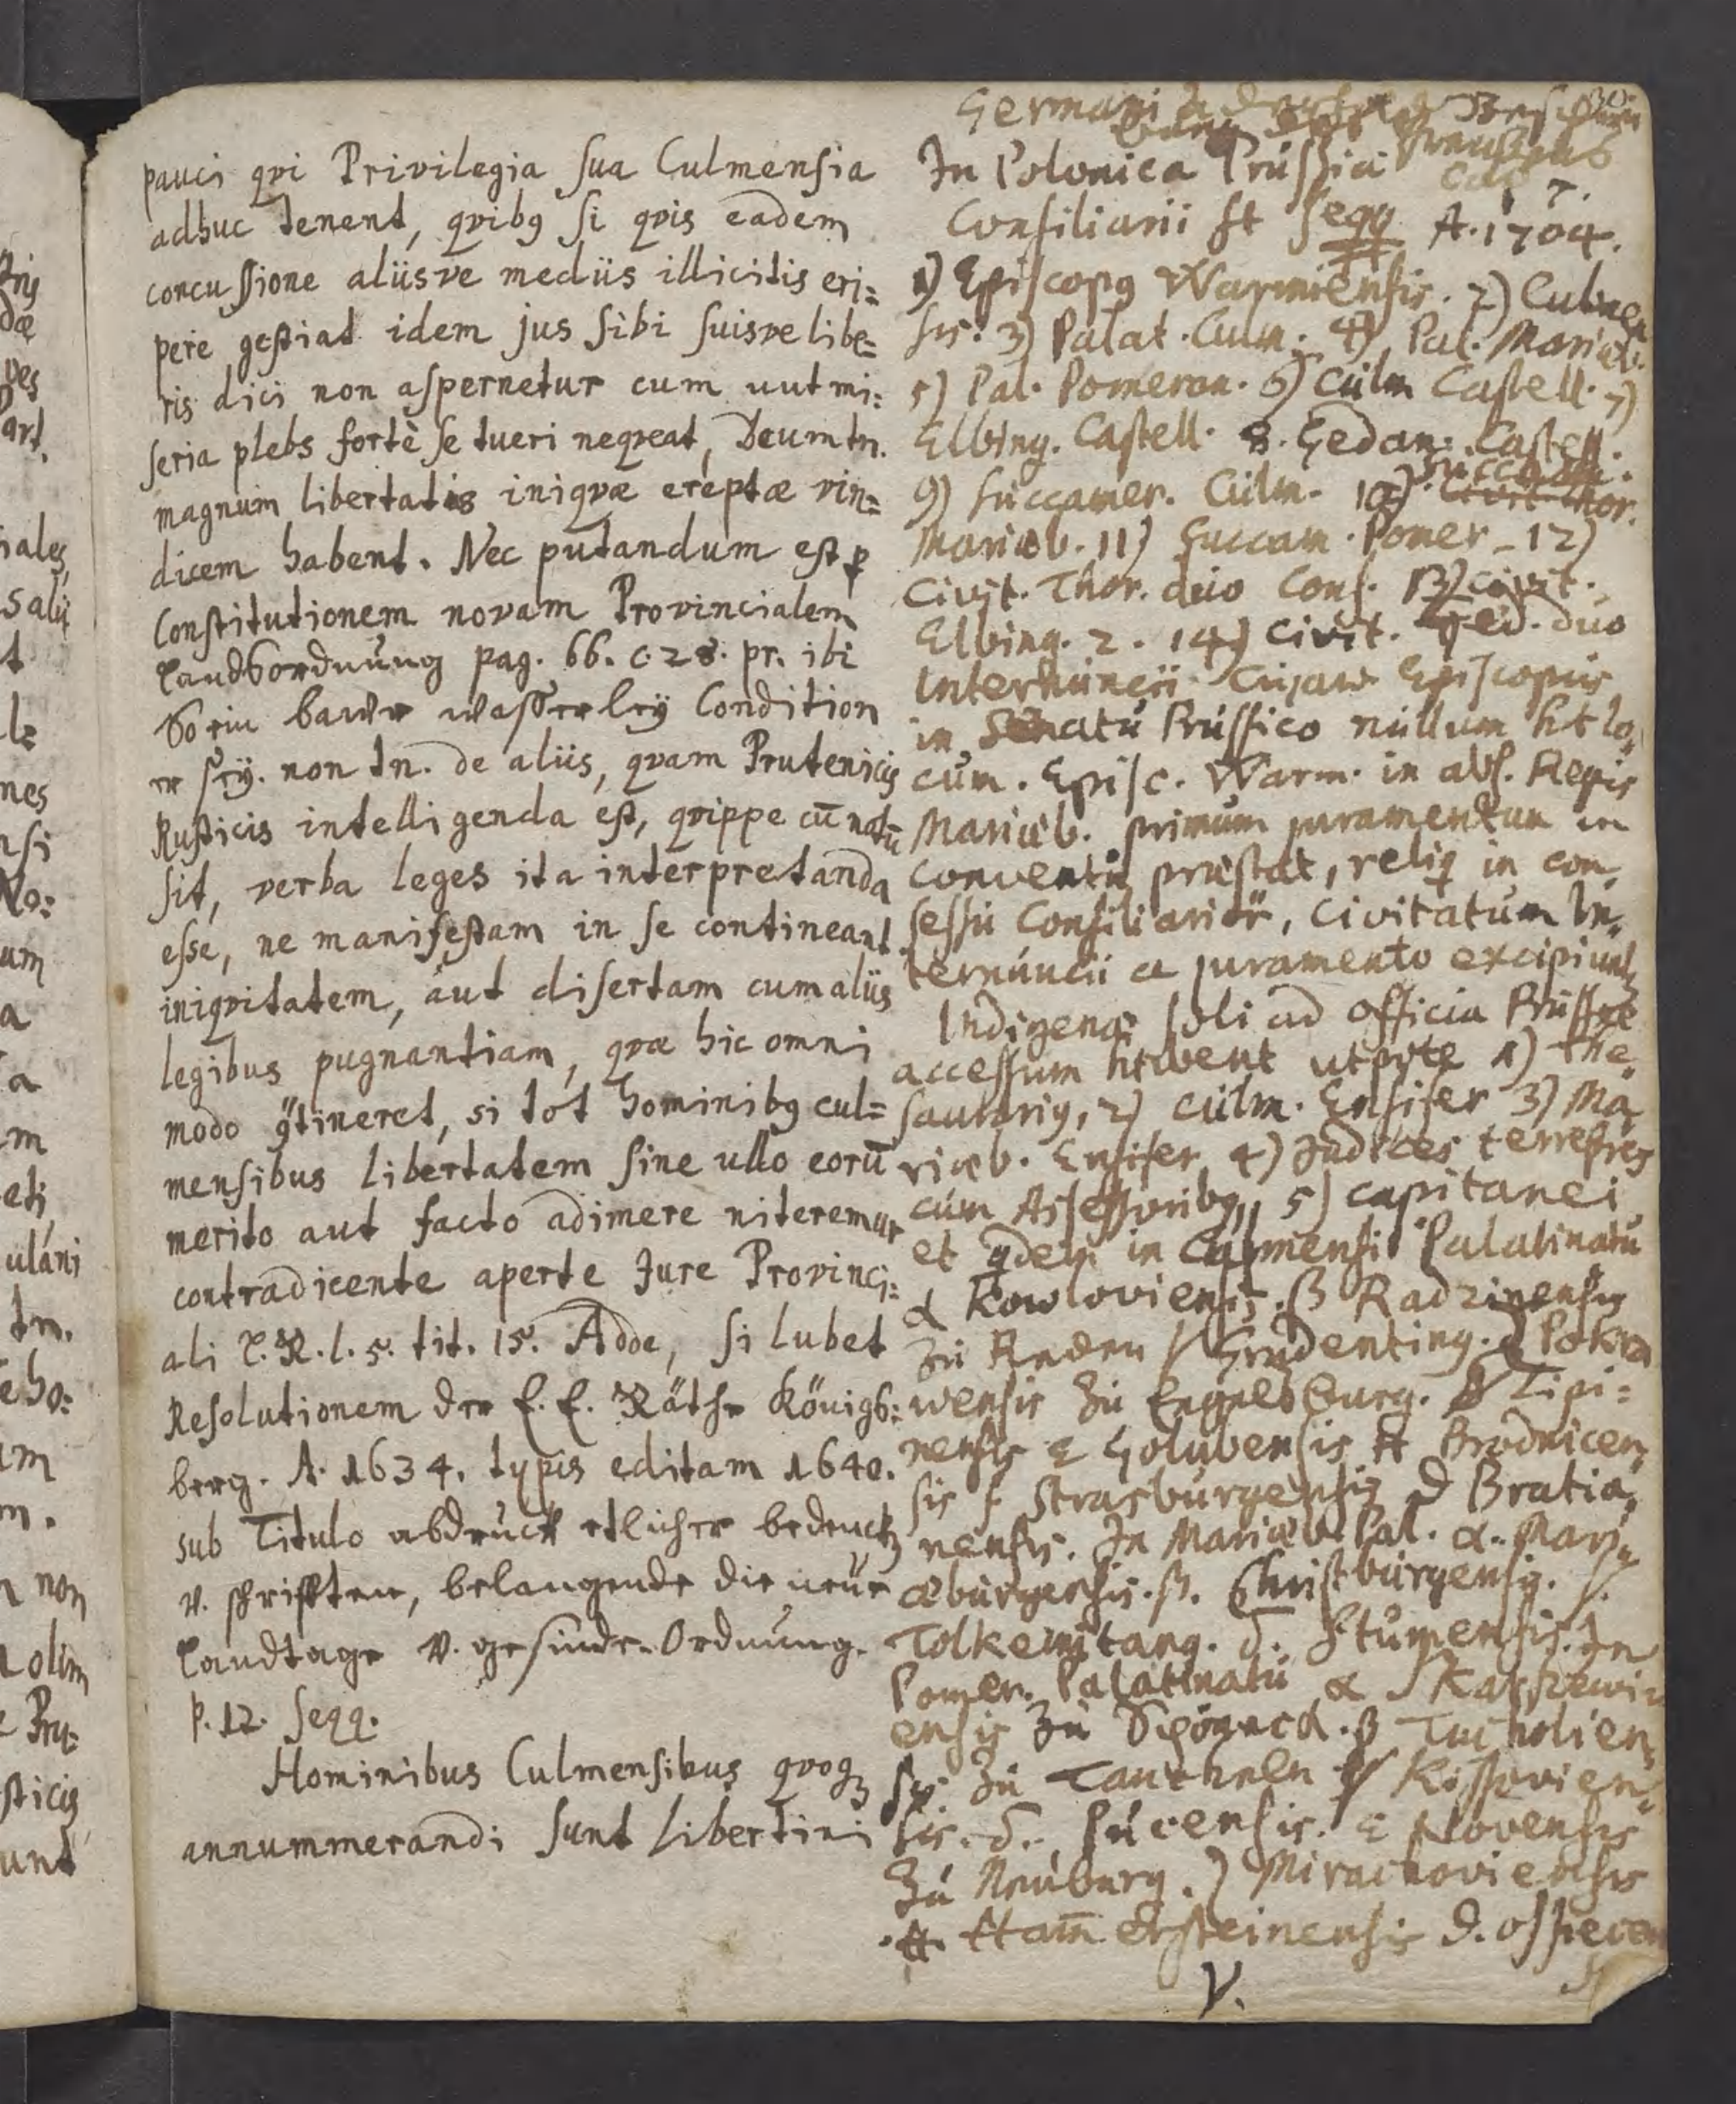 pauci qvi Privilegia sua Culmensia
adhuc tenent, qvibg si qvis eadem
concussione aliisve mediis illicitis eri=
pere gestiat idem jus sibi suisve libe=
ris dici non aspernetur cum uut mi=
seria plebs fortè se tueri neqveat, Deum tn.
magnum libertatis iniqvæ ereptæ vin=
dicem habent. Nec putandum est p
Constitutionem novam Provincialem
Landsordnung pag. 66. c. 28. pr. ibi
So ein bawr wasserley Condition
er sey. non tn. de aliis, qvam Prutenicis
Rusticis intelligenda est, qvippe cū notū
sit, verba leges ita interpretanda
esse, ne manifestam in se contineant
iniqvitatem, aut disertam cum aliis
legibus pugnantiam, qvæ hic omni
modo gtineret, si tot hominibg cul=
mensibus libertatem sine ullo eorū
merito aut facto adimere niteremur
contradicente aperte Jure Provinci=
ali L.R. l. 5. tit. 15. Adde, si lubet
Resolutionem der E. E. Räthe Königs=
berg. A. 1634. typis editam 1640.
sub Titulo abdruck etlicher bedenck
v. schrifften, belangende die neüe
Landtage v. gesinde-Ordnung.
p. 12. seqq.
Hominibus Culmensibus qvoqz
annummerandi sunt libertini
Germani
In Polonica Prussia
Consiliarii st seqq A. 1704.
1) Episcopg Warmiensis. 2) Culmen
sis. 3) Palat. Culm. 4) Pal. Mariæb.
5) Pal. Pomeran. 6) Culm Castell. 7)
Elbing. Castell. 8. Gedan. Castell.
9) Succamer. Culm. 10) Succam.
Civit Thor.
Mariæb. 11) Succam. Pomer. 12)
Civit. Thor. duo Cons. 13) Civit.
Elbing. 2. 14) Civit. Ged. duo
Internuncii. Cujaw Episcopus
in Senatu Prussico nullum ht lo=
cum. Episc. Warm. in abs. Regis
Mariæb. primum juramentum in
conventu præstat, reliq in con=
sessu Consiliariorū, Civitatum In=
ternuncii a juramento excipiunt
Indigenæ soli ad officia Prussiæ
accessum htbent utpote 1) The=
saurarig, 2) Culm. Ensifer 3) Ma=
riæb. Ensifer 4) Judices terrestres
cum Assessoribg, 5) Capitanei
et qdem in Culmensi Palatinatu
α Kowloviensis. β Radzinensis
zu Reden γ Grudenting. δ Pokrza
wensis zu Engelsburg. Lipi=
nensis ε Golubensis Brodnicen=
sis s Strasburgensis ϑ Bratia=
nensis. In Mariæb. Pal. α. Mari=
æburgensis. β. Christburgensis. γ.
Tolkemitang. δ. Stumensis. In
Pomer. Palatinatu α Skarszewi
ensis zu Schöneck. β Tucholien=
sis zu Tauchnen γ Kissovien=
sis. δ. Pucensis. ε Novensis
zu Neuburg. Mirachoviensis
Hamērsteinensis ϑ. ossiecen
V.